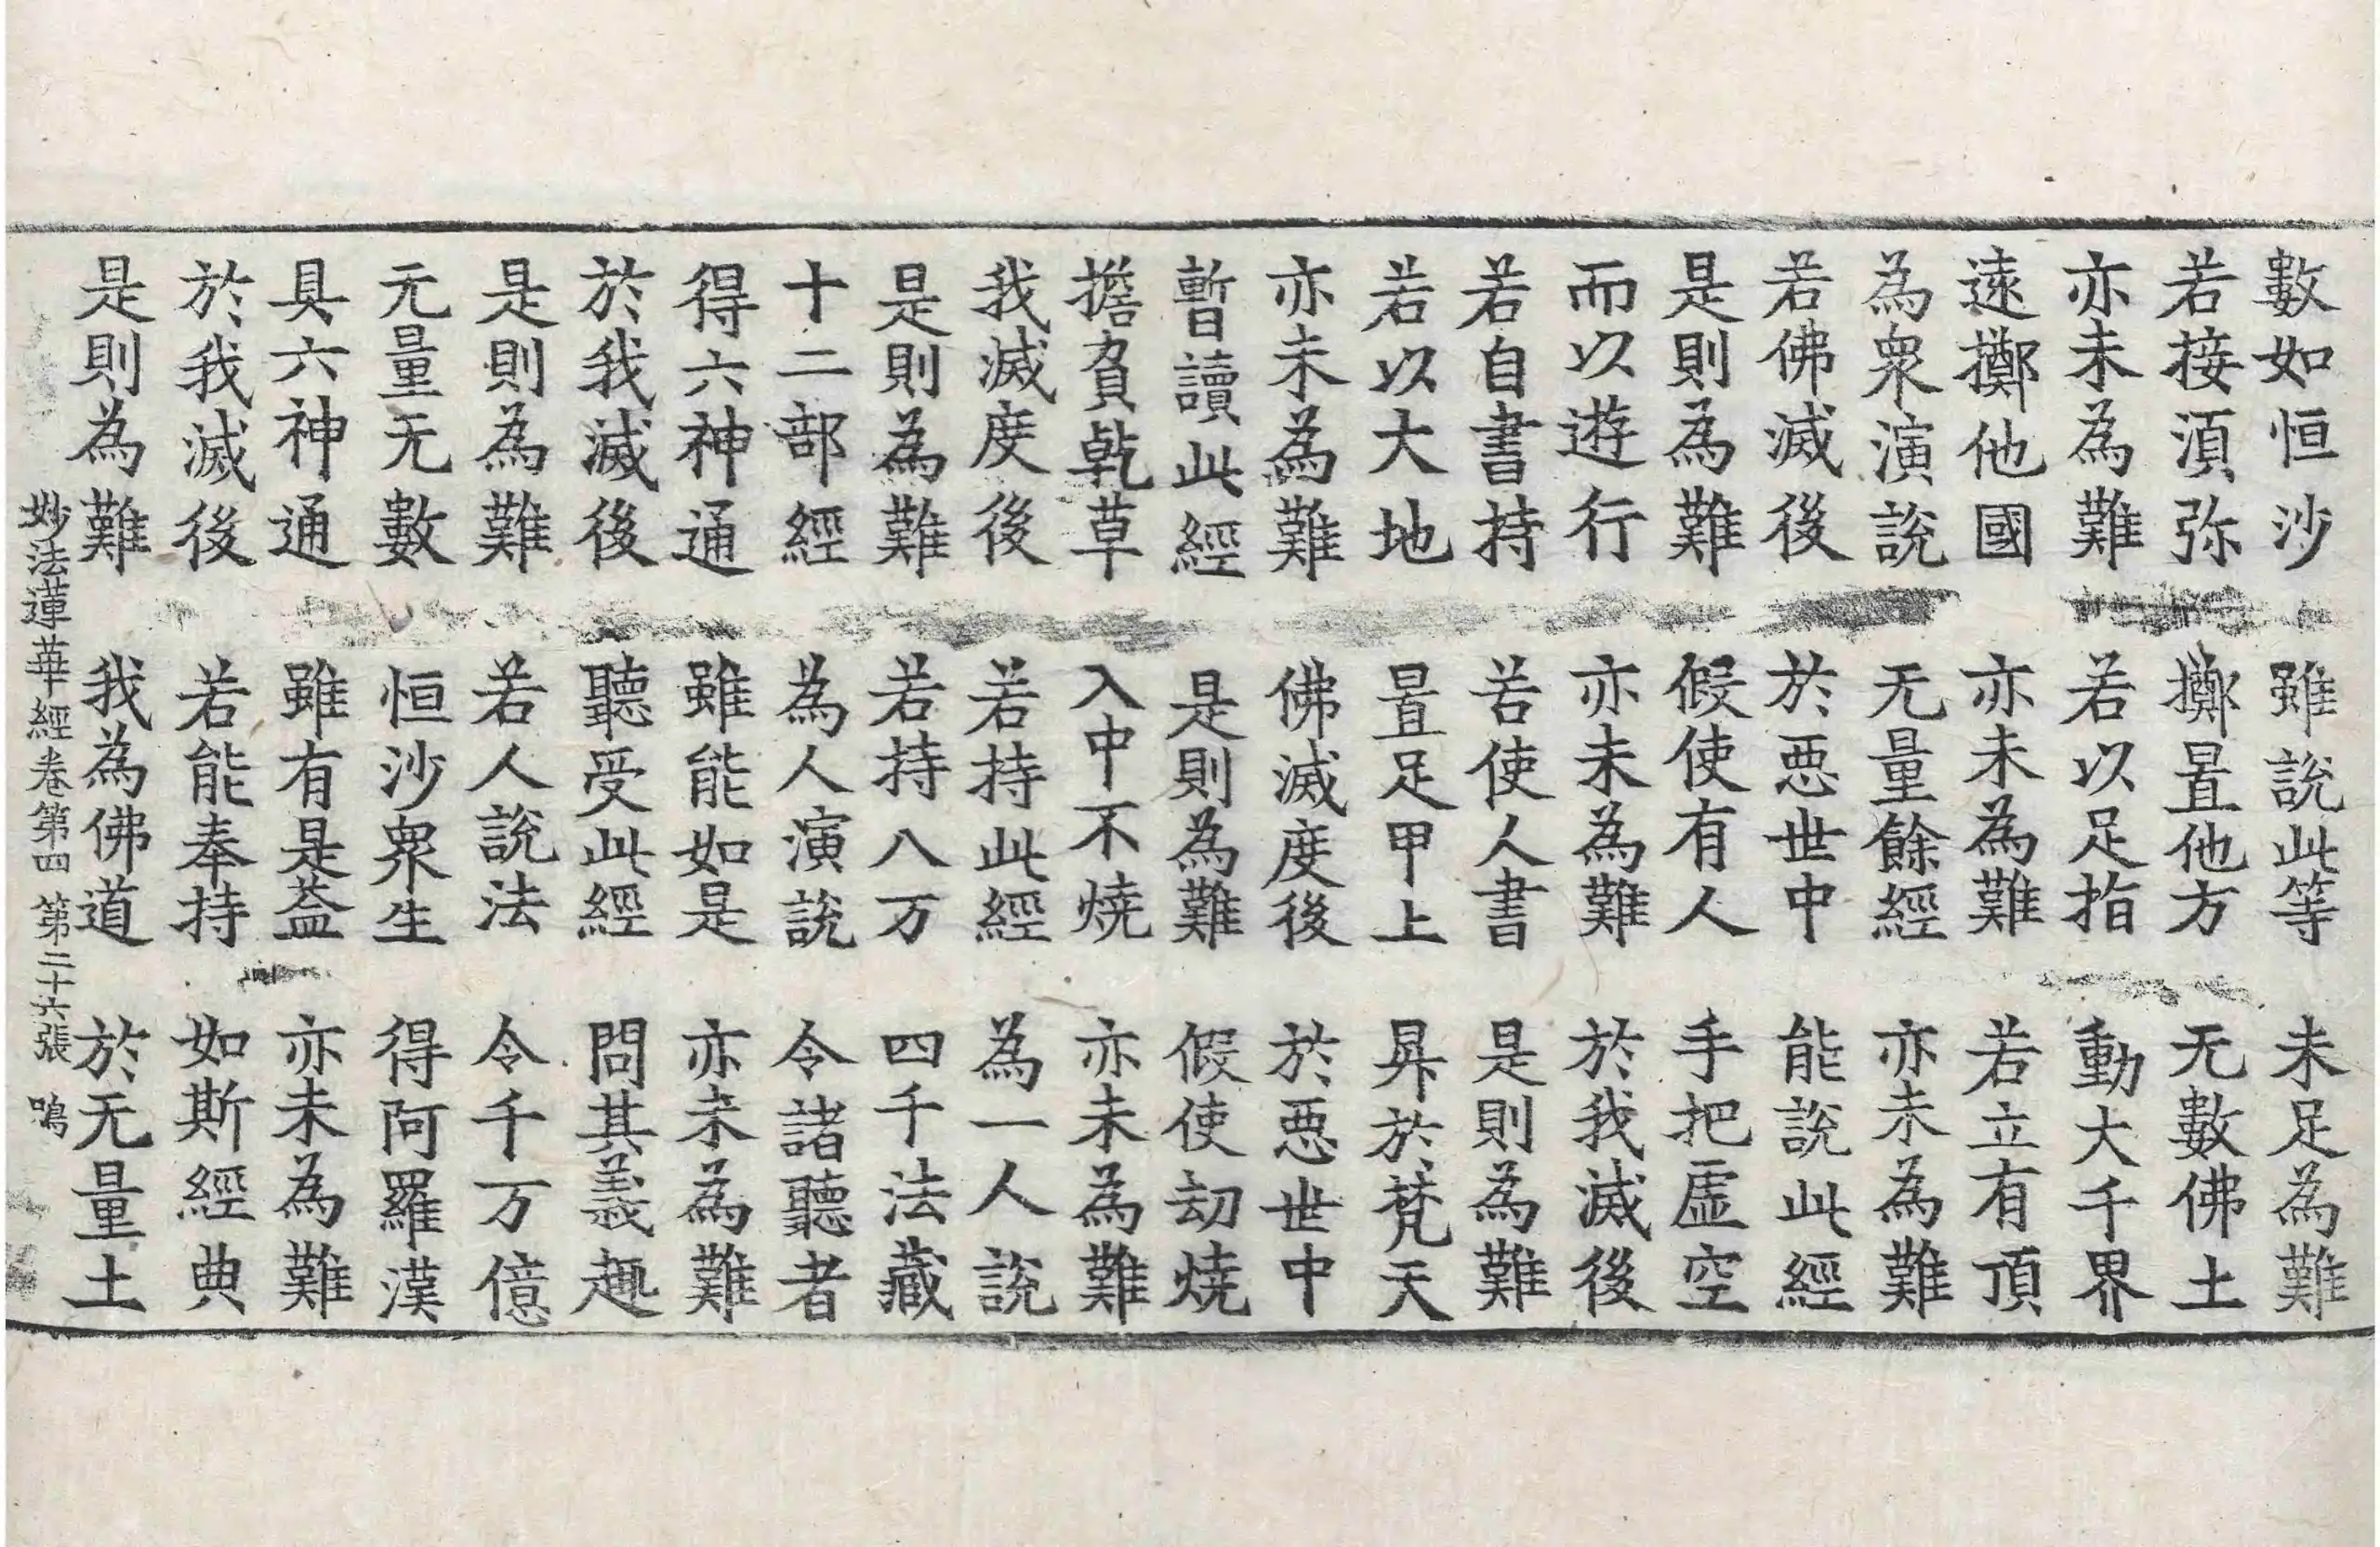 數如恒沙　雖說此等　未足為難
若接湏弥　擲置他方　无數佛土
亦未為難　若以足指　動大千界
遠擲他國　亦未為難　若立有頂
為衆演說　无量餘經　亦未為難
若佛滅後　於惡世中　能說此經
是則為難　假使有人　手把虛空
而以遊行　亦未為難　於我滅後
若自書持　若使人書　是則為難
若以大地　置足甲上　昇於梵天
亦未為難　佛滅度後　於惡世中
暫讀此經　是則為難　假使劫燒
擔負乾草　入中不燒　亦未為難
我滅度後　若持此經　為一人說
是則為難　若持八万　四千法藏
十二部經　為人演說　令諸聽者
得六神通　雖能如是　亦未為難
於我滅後　聽受此經　問其義趣
是則為難　若人說法　令千万億
无量无數　恒沙衆生　得阿羅漢
具六神通　雖有是益　亦未為難
於我滅後　若能奉持　如斯經典
是則為難　我為佛道　於无量土
妙法蓮華經卷第四　第二十六張　鳴